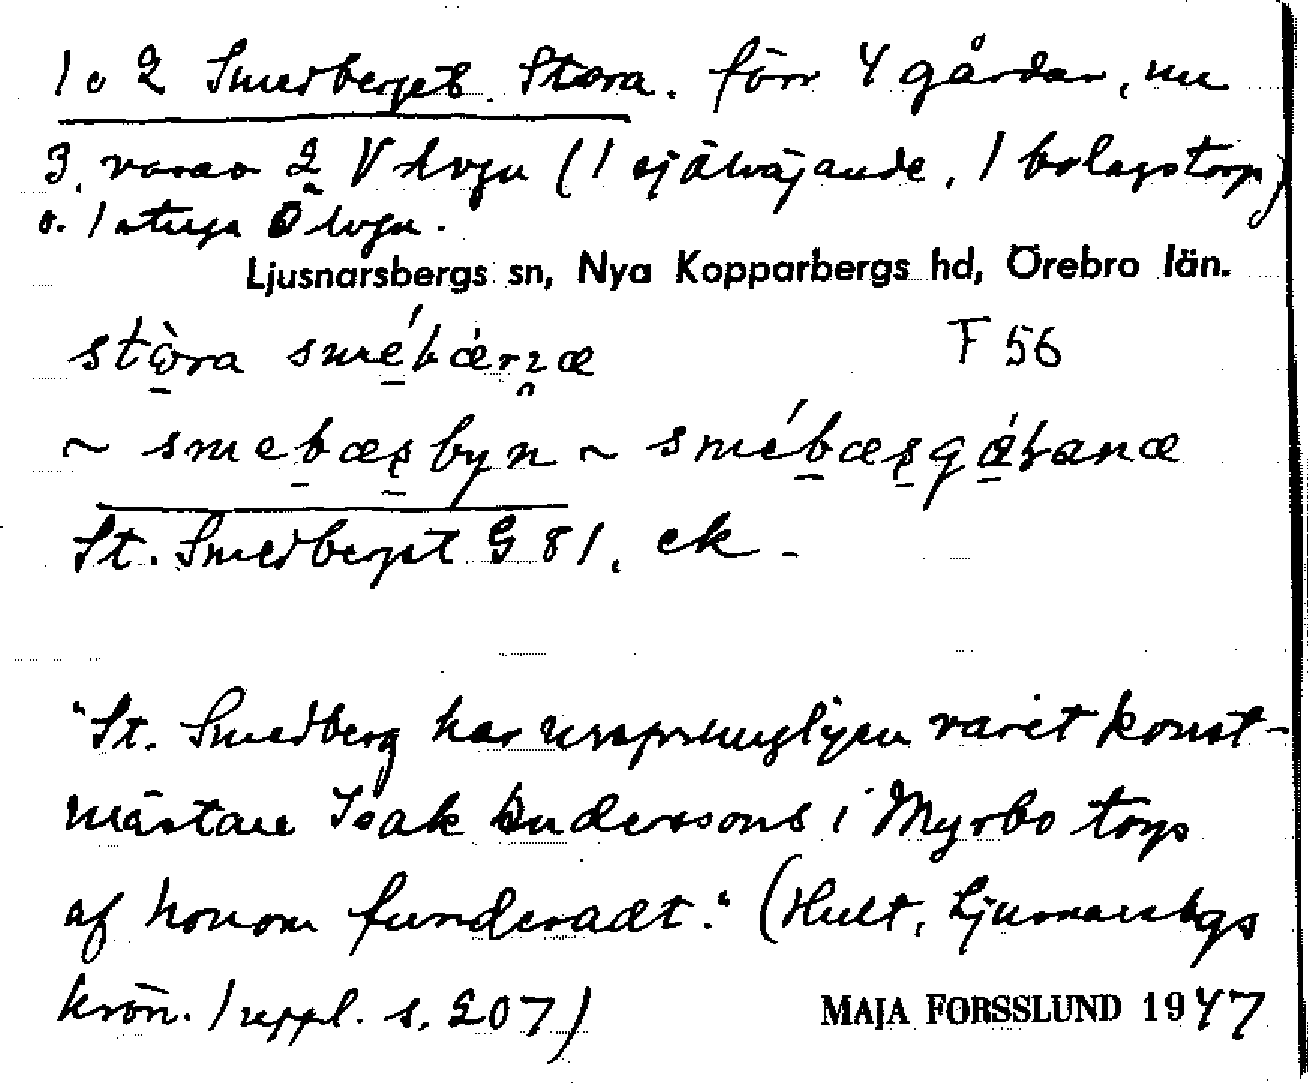 1 o 2 Smedberget Stora. förr 4 gårdar, nu
3, varav 2 V lvgn (1 självägande, 1 bolagstorp)
o. 1 stuga Ö lvgn.
Ljusnarsbergs sn, Nya Kopparbergs hd, Örebro län.
stòra smébær
F 56
~ smebæṣbyn ~ smébæṣ
St. Smedberget G 81, ek
"St. Smedberg har ursprungligen varit konst-
mästare Isak Anderssons i Myrbo torp
af honom funderadt." (Hult, Ljusnarsbgs
krön. 1 uppl. s. 207)
MAJA FORSSLUND 1947